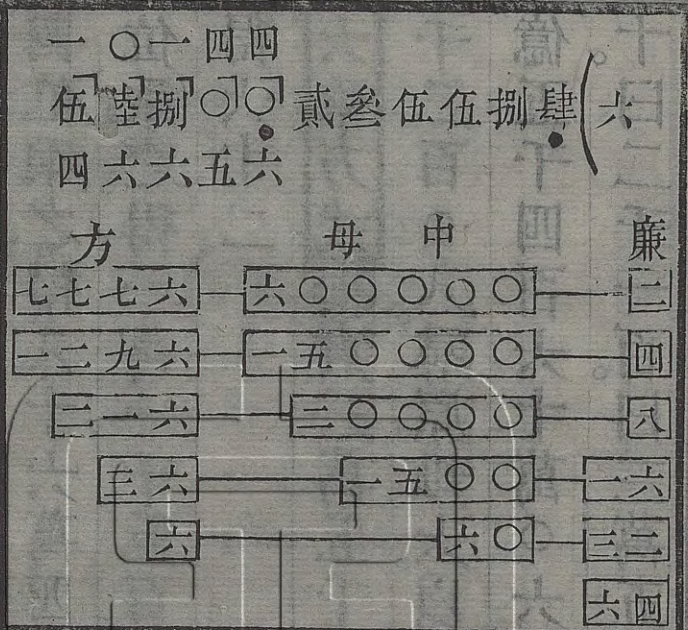 一〇一四四
伍陸捌〇〇貳叄伍伍捌肆(六
四六六五六
方 母 中 廉
七七七六 六〇〇〇〇〇 二
一二九六 一五〇〇〇〇 四
二一六 二〇〇〇〇 八
三六 一五〇〇 一六
六 六〇 三二
六四